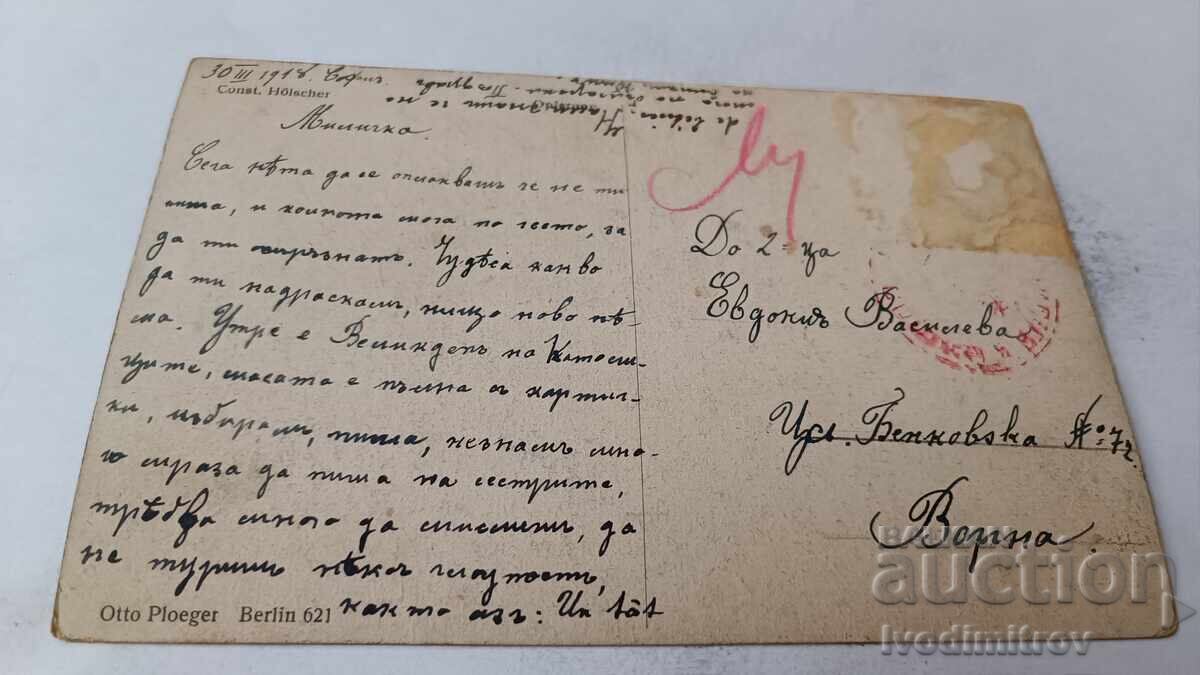 30 III 1918. Софиꙗ.
Const. Hölscher
Миличка.
Сега нѣма да се оплаквашъ че не ти
пиша, и колкото мога по често, за
да ти омръзнатъ. Чудѣса какво
да ти надраскамъ, нищо ново нѣ-
ма. Утре е Великденъ на Католи-
ците, масата е пълна съ картич-
ки, избирамъ, пиша, незнамъ мно-
го мраза да пиша на сестрите,
трѣбва много да мислишъ, да
не туришъ нѣкоя глупость,
както азъ: Un tât
Otto Ploeger Berlin 621
До г-ца
Евдокия Василева
Ул. Бенковска № 74.
Варна
ВАШИЯТ
auction
Ivodimitrov